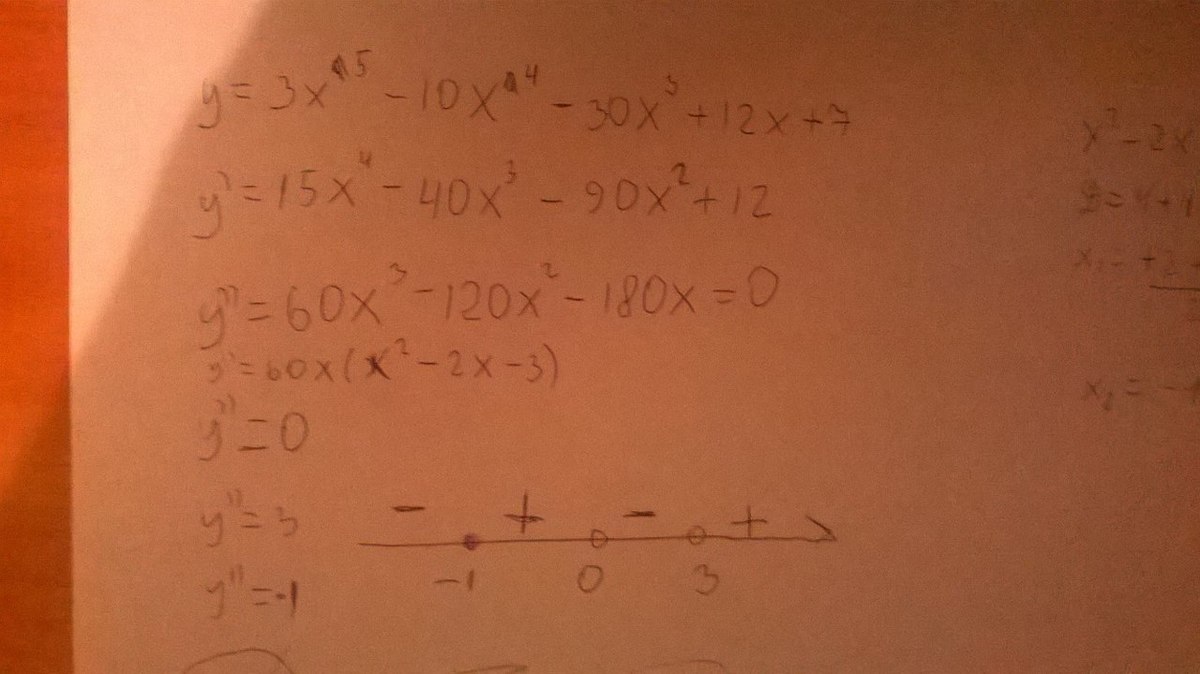 y = 3x^5 - 10x^4 - 30x^3 + 12x + 7
y' = 15x^4 - 40x^3 - 90x^2 + 12
y'' = 60x^3 - 120x^2 - 180x = 0
y'' = 60x(x^2 - 2x - 3)
y'' = 0
y'' = 3
- + - +
y'' = -1
-1 0 3
x^2 - 2x
x₁ = +2
x₂ = -